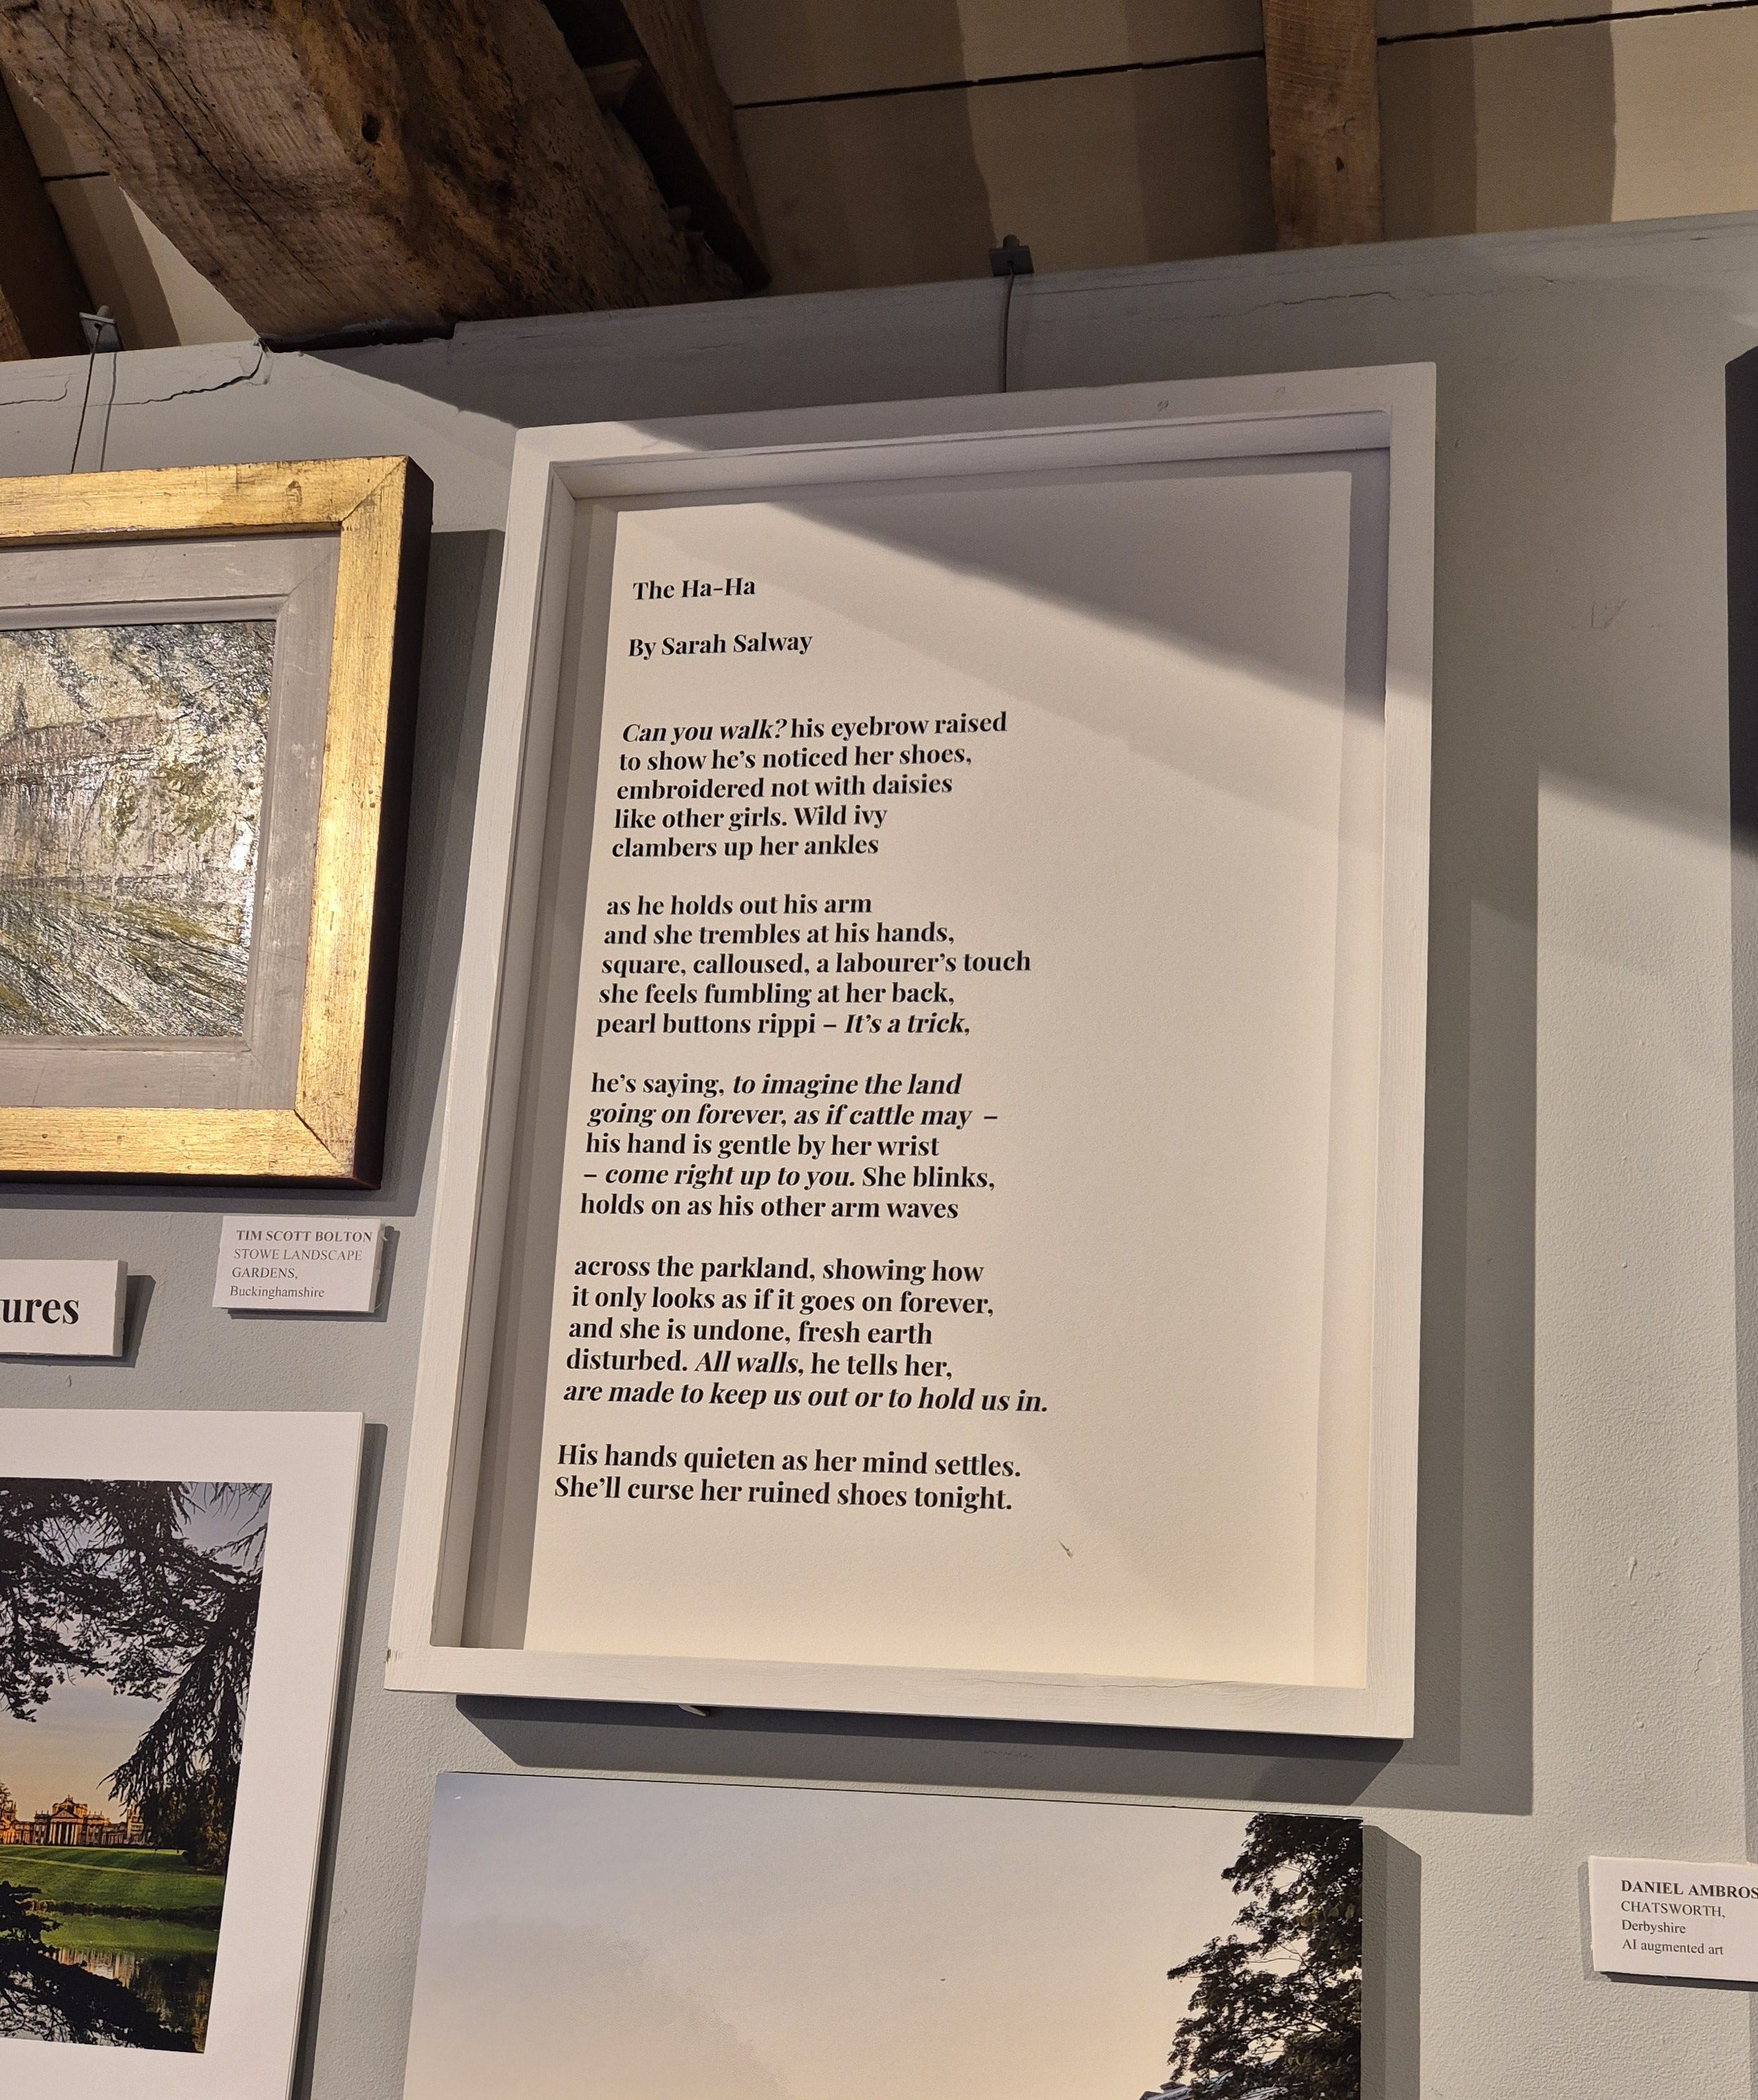 The Ha-Ha
By Sarah Salway
Can you walk? his eyebrow raised
to show he's noticed her shoes,
embroidered not with daisies
like other girls. Wild ivy
clambers up her ankles
as he holds out his arm
and she trembles at his hands,
square, calloused, a labourer's touch
she feels fumbling at her back,
pearl buttons rippi – It's a trick,
he's saying, to imagine the land
going on forever, as if cattle may –
his hand is gentle by her wrist
– come right up to you. She blinks,
holds on as his other arm waves
across the parkland, showing how
it only looks as if it goes on forever,
and she is undone, fresh earth
disturbed. All walls, he tells her,
are made to keep us out or to hold us in.
His hands quieten as her mind settles.
She'll curse her ruined shoes tonight.
TIM SCOTT BOLTON
STOWE LANDSCAPE
GARDENS,
Buckinghamshire
ures
DANIEL AMBROS
CHATSWORTH,
Derbyshire
AI augmented art